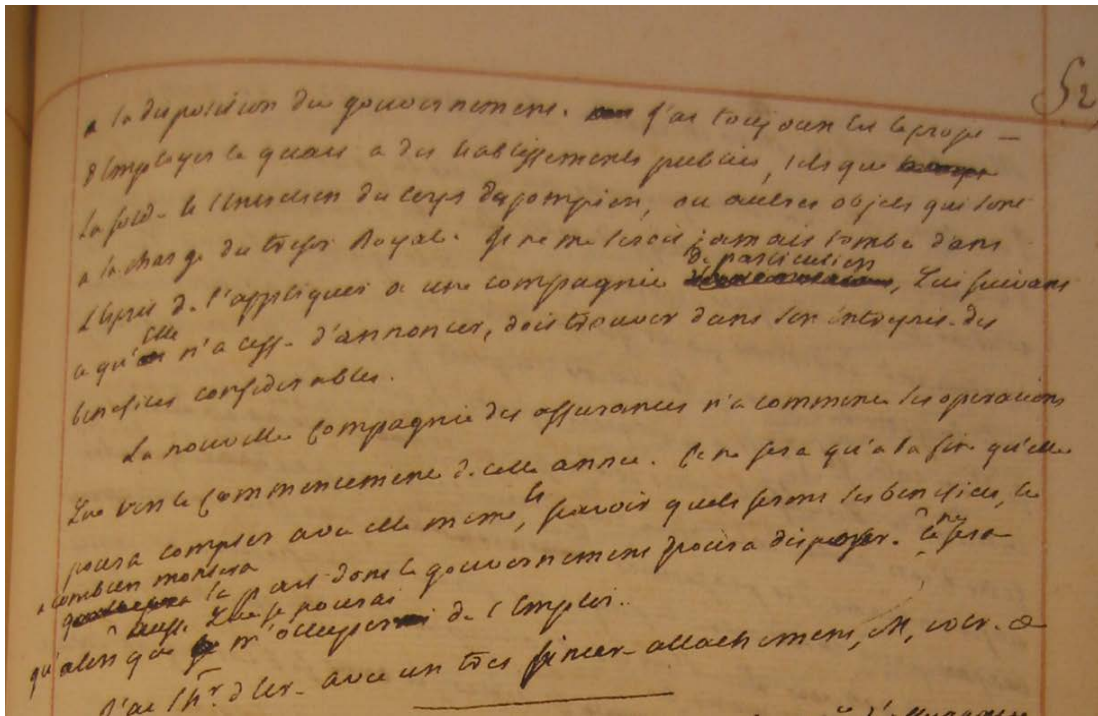 52
a la disposition du gouvernement. j'ai toujours eu le projet
d'employer le quart a des etablissements publics, tels que
la solde le l'entretien du corps des pompiers, ou autres objets qui sont
a la charge du tresor Royal. Je ne me serois jamais tombé dans
l'esprit de l'appliquer a une compagnie de particuliers, qui suivant
ce qu'elle n'a cessé d'annoncer, doit trouver dans son entreprise des
benefices considerables.
La nouvelle Compagnie des assurances n'a commencé ses operations
que vers le Commencement de cette année. Ce ne sera qu'a la fin qu'elle
poura compter avec elle meme, et sçavoir quels seront ses benefices, et
a combien montera la part dont le gouvernement poura disposer. Ce ne sera
qu'alors aussi que je pourai m'occuper de l'Emploi.
J'ai l'hr. d'etre avec un tres sincere attachement, M, votre &